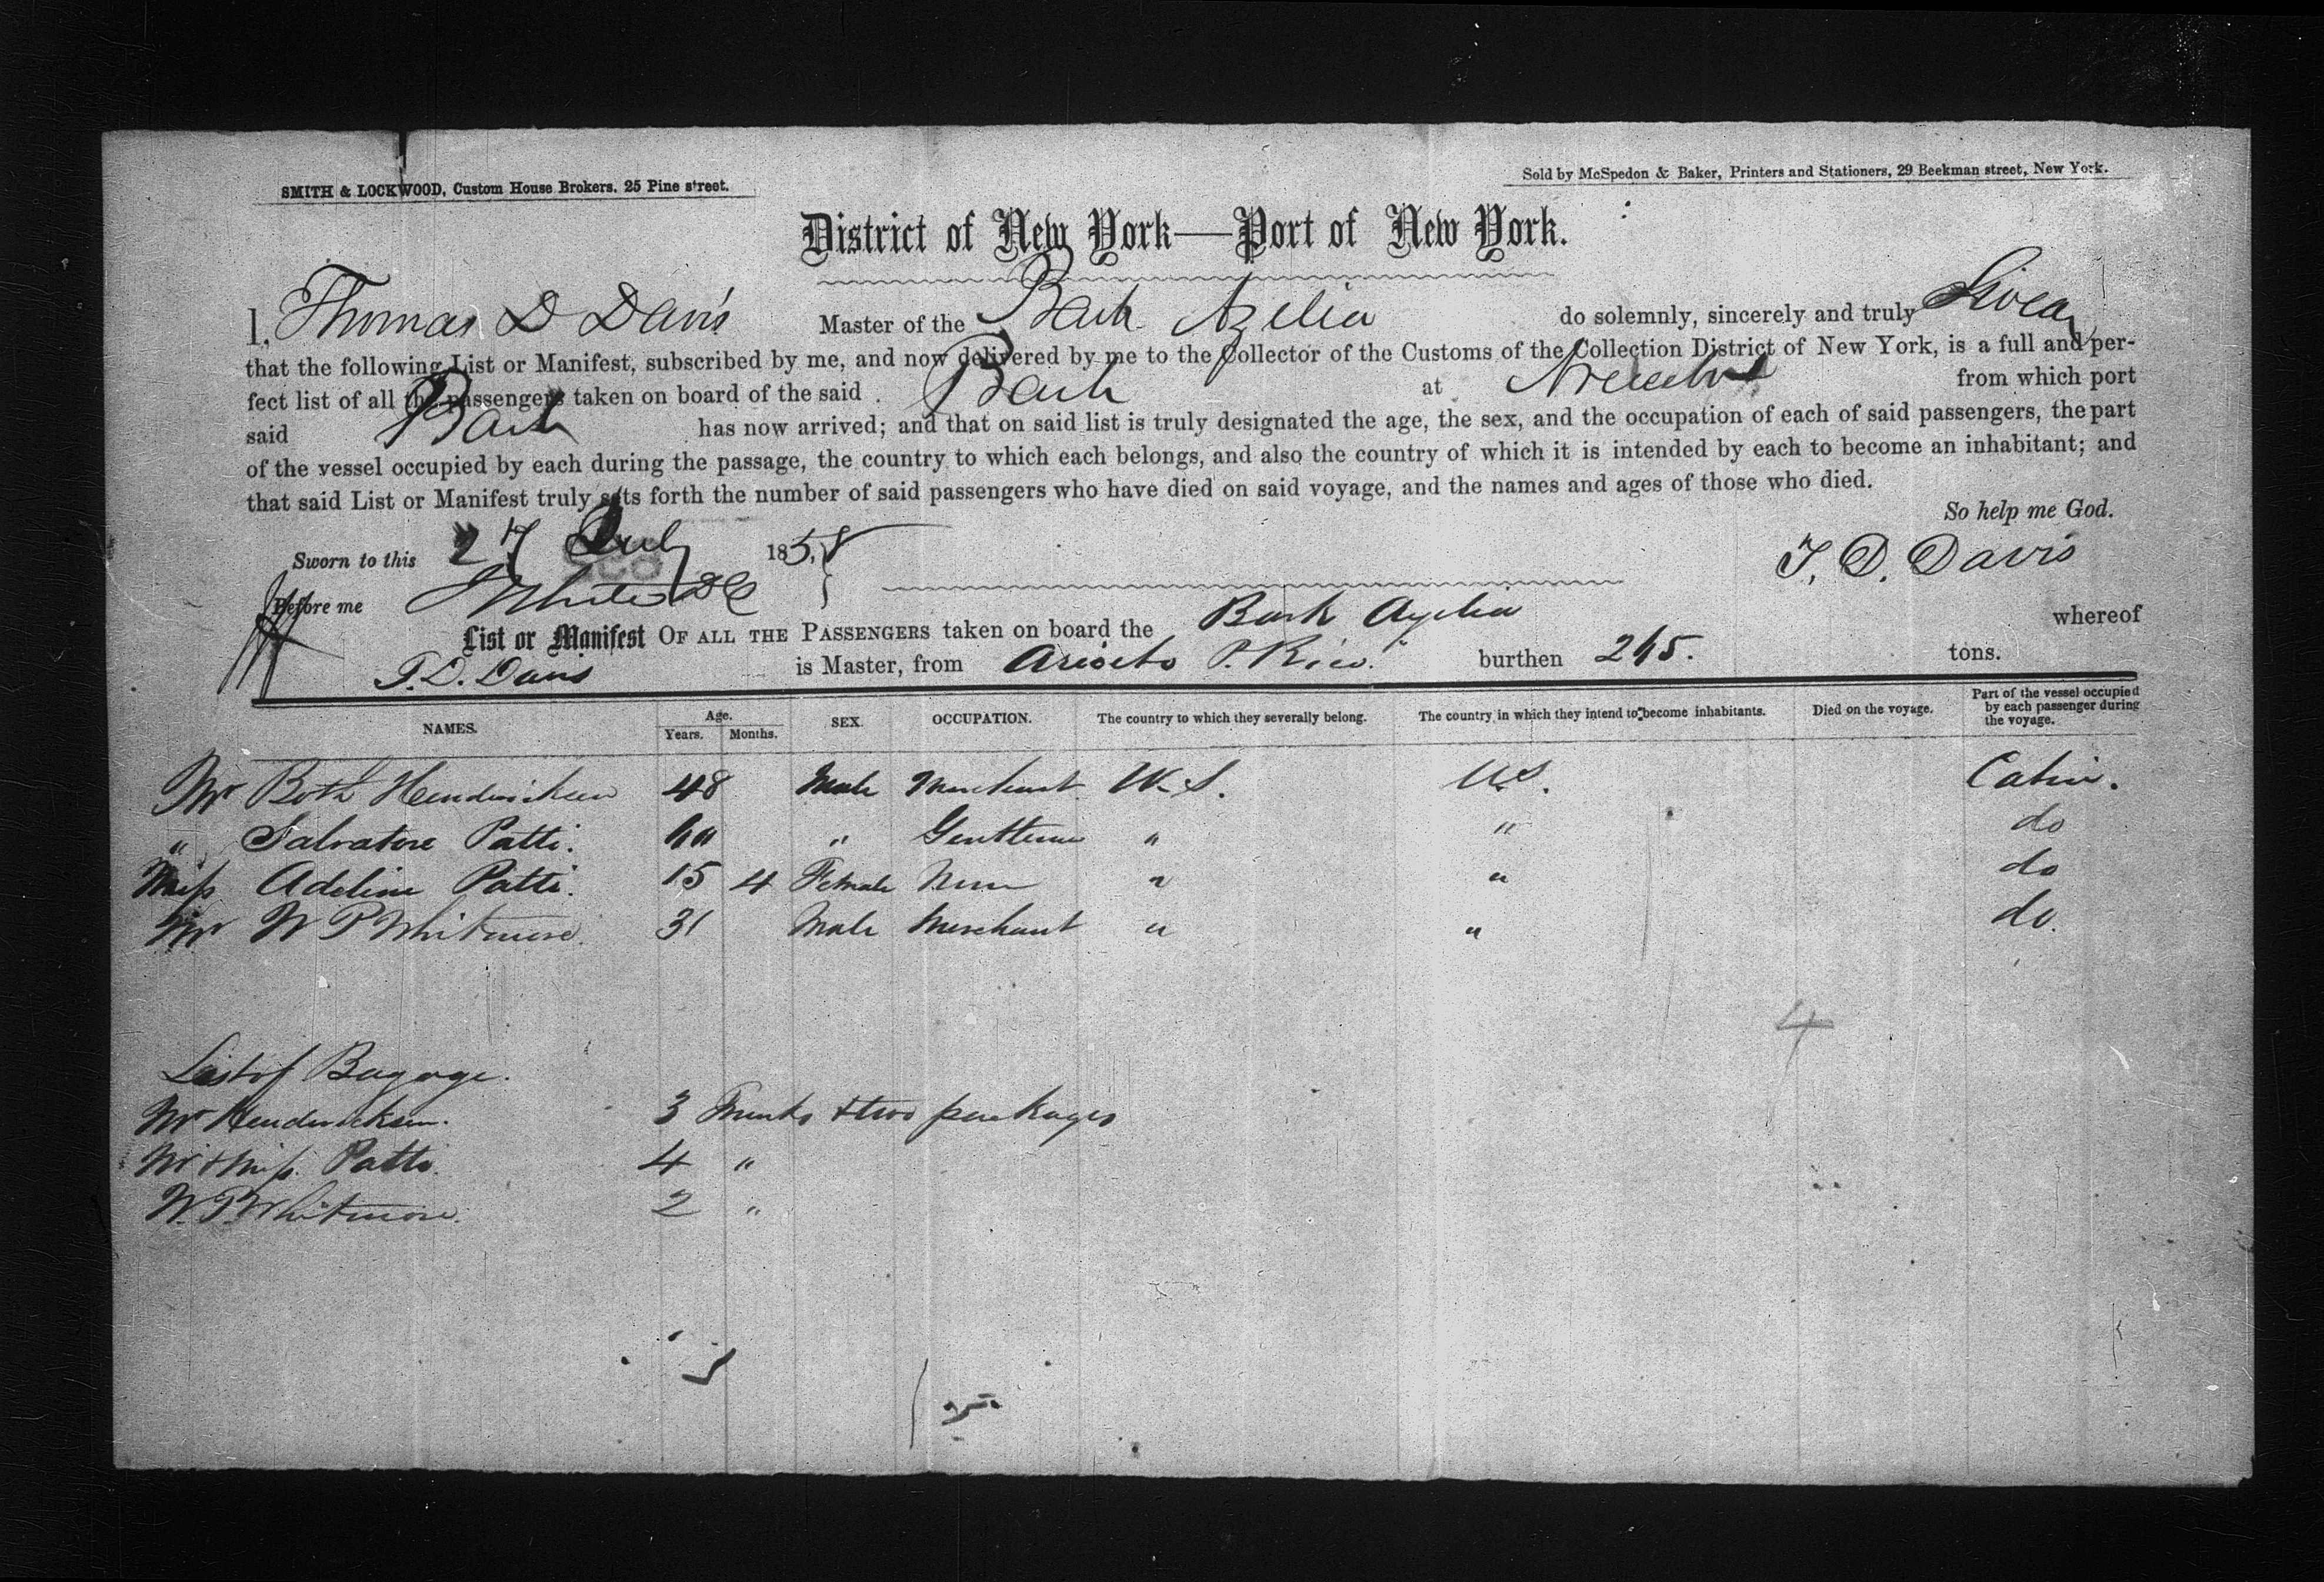 SMITH & LOCKWOOD, Custom House Brokers. 25 Pine street.
Sold by McSpedon & Baker, Printers and Stationers, 29 Beekman street, New York.
District of New York—Port of New York.
I, Thomas D Davis Master of the Bark Azelia do solemnly, sincerely and truly Swear
that the following List or Manifest, subscribed by me, and now delivered by me to the Collector of the Customs of the Collection District of New York, is a full and per-
fect list of all the passengers taken on board of the said Bark at from which port
said Bark has now arrived; and that on said list is truly designated the age, the sex, and the occupation of each of said passengers, the part
of the vessel occupied by each during the passage, the country to which each belongs, and also the country of which it is intended by each to become an inhabitant; and
that said List or Manifest truly sets forth the number of said passengers who have died on said voyage, and the names and ages of those who died.
So help me God.
Sworn to this 27 July 1858
T. D. Davis
Before me White
List or Manifest OF ALL THE PASSENGERS taken on board the Bark Azelia whereof
T. D. Davis is Master, from P. Rico. burthen 245. tons.
NAMES. Age. Years. Months. SEX. OCCUPATION. The country to which they severally belong. The country in which they intend to become inhabitants. Died on the voyage. Part of the vessel occupied by each passenger during the voyage.
Mr Hendricksen 48 Male Merchant U.S. U.S. Cabin.
" Salvatore Patti. " Gentleman " " do
Miss Adeline Patti. 15 4 Female None " " do
Mr W P Whitmore. 31 Male Merchant " " do.
4
List of Bagage.
Mr Hendricksen. 3 Trunks & two packages
Mr & Miss Patti. 4 "
W. P. Whitmore. 2 "